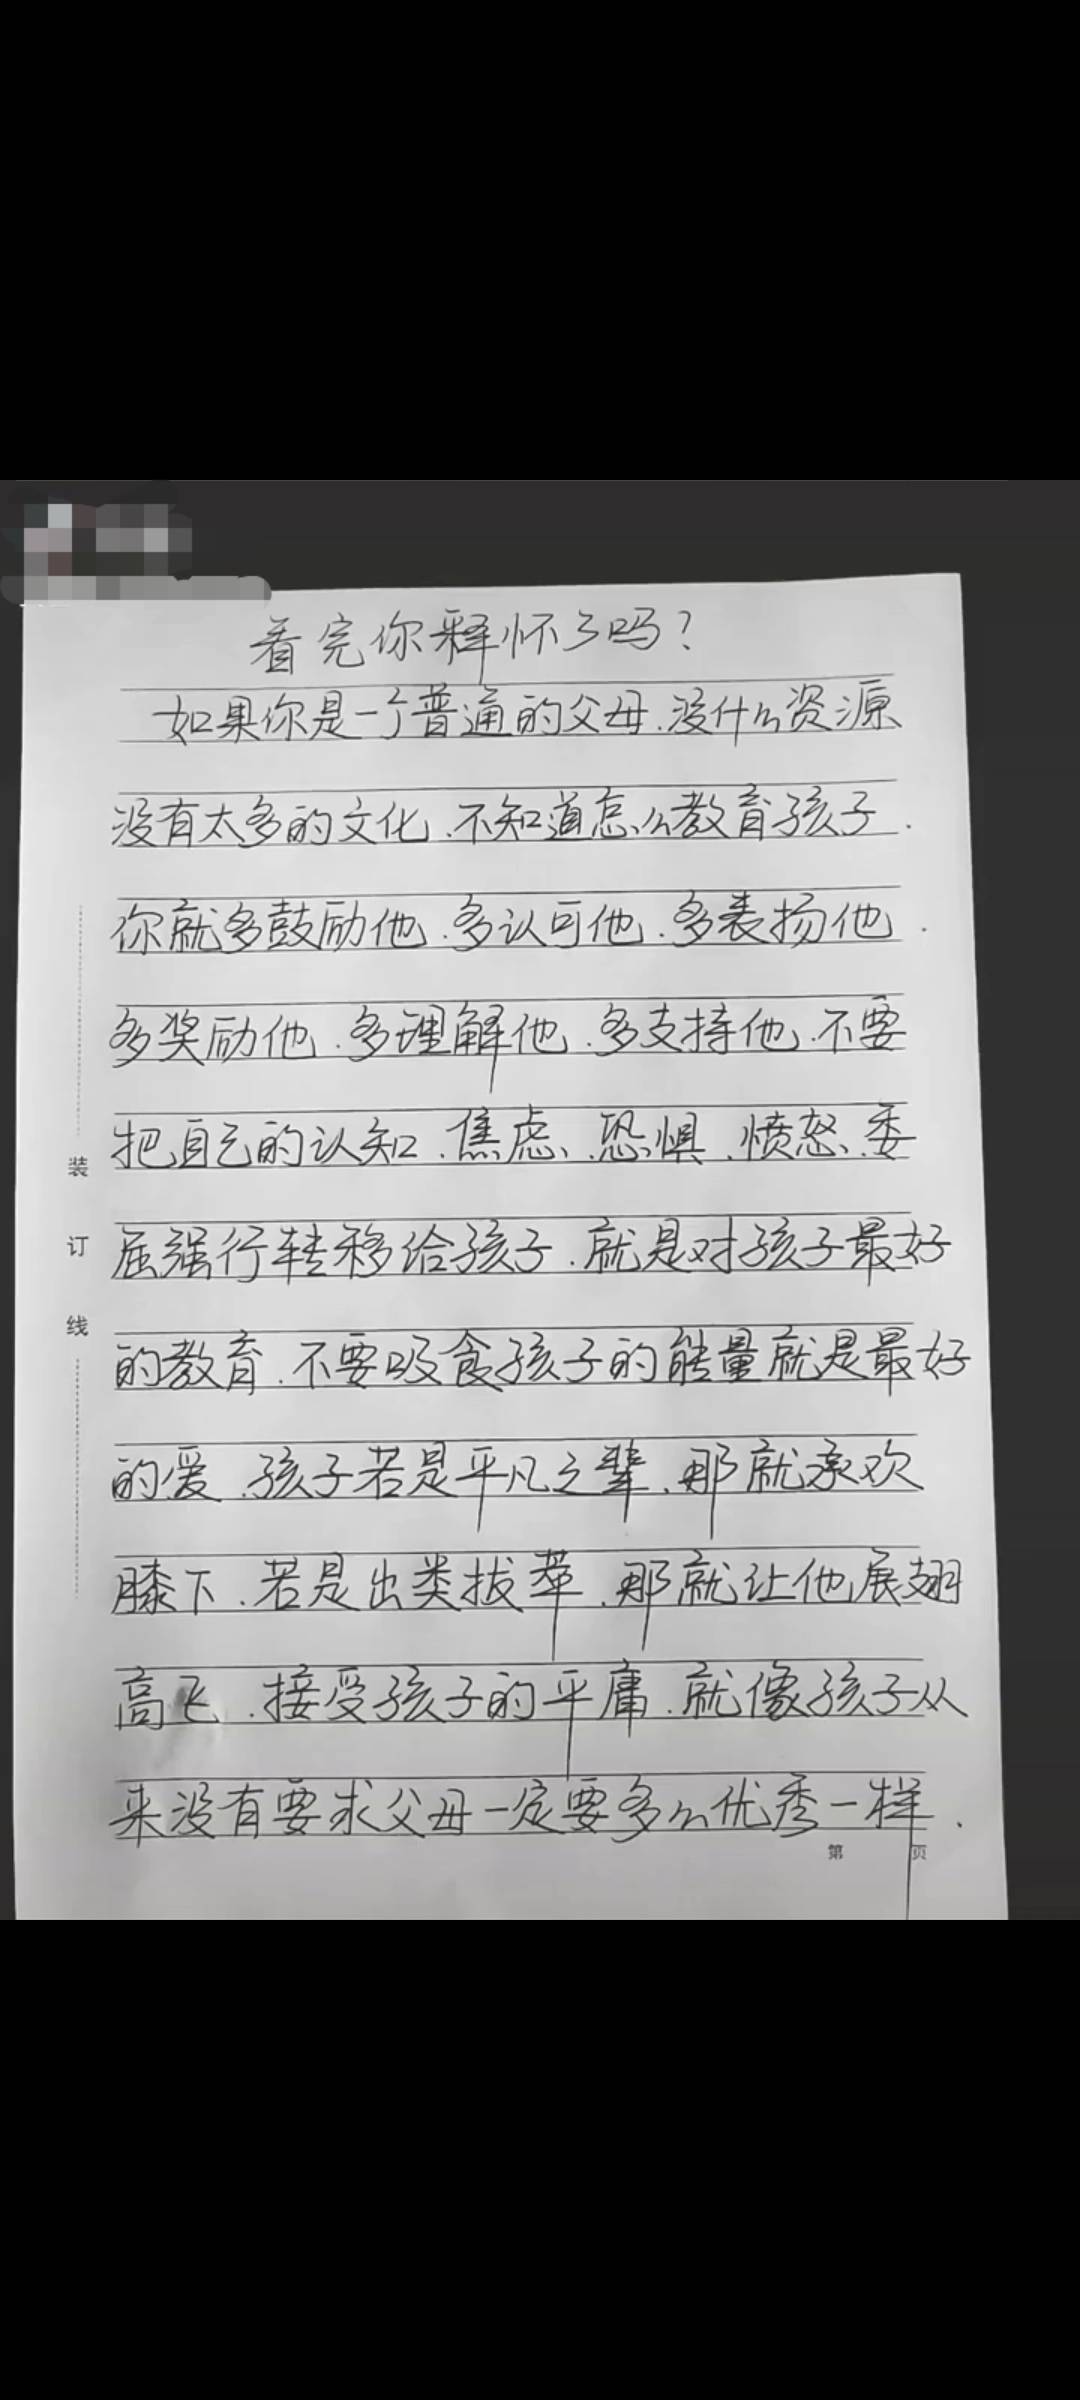 看完你释怀了吗?
如果你是一个普通的父母.没什么资源
没有太多的文化.不知道怎么教育孩子.
你就多鼓励他.多认可他.多表扬他.
多奖励他.多理解他.多支持他.不要
把自己的认知.焦虑、恐惧.愤怒.委
屈强行转移给孩子.就是对孩子最好
的教育.不要吸食孩子的能量就是最好
的爱.孩子若是平凡之辈.那就承欢
膝下.若是出类拔萃.那就让他展翅
高飞.接受孩子的平庸.就像孩子从
来没有要求父母一定要多么优秀一样.
装
订
线
第 页